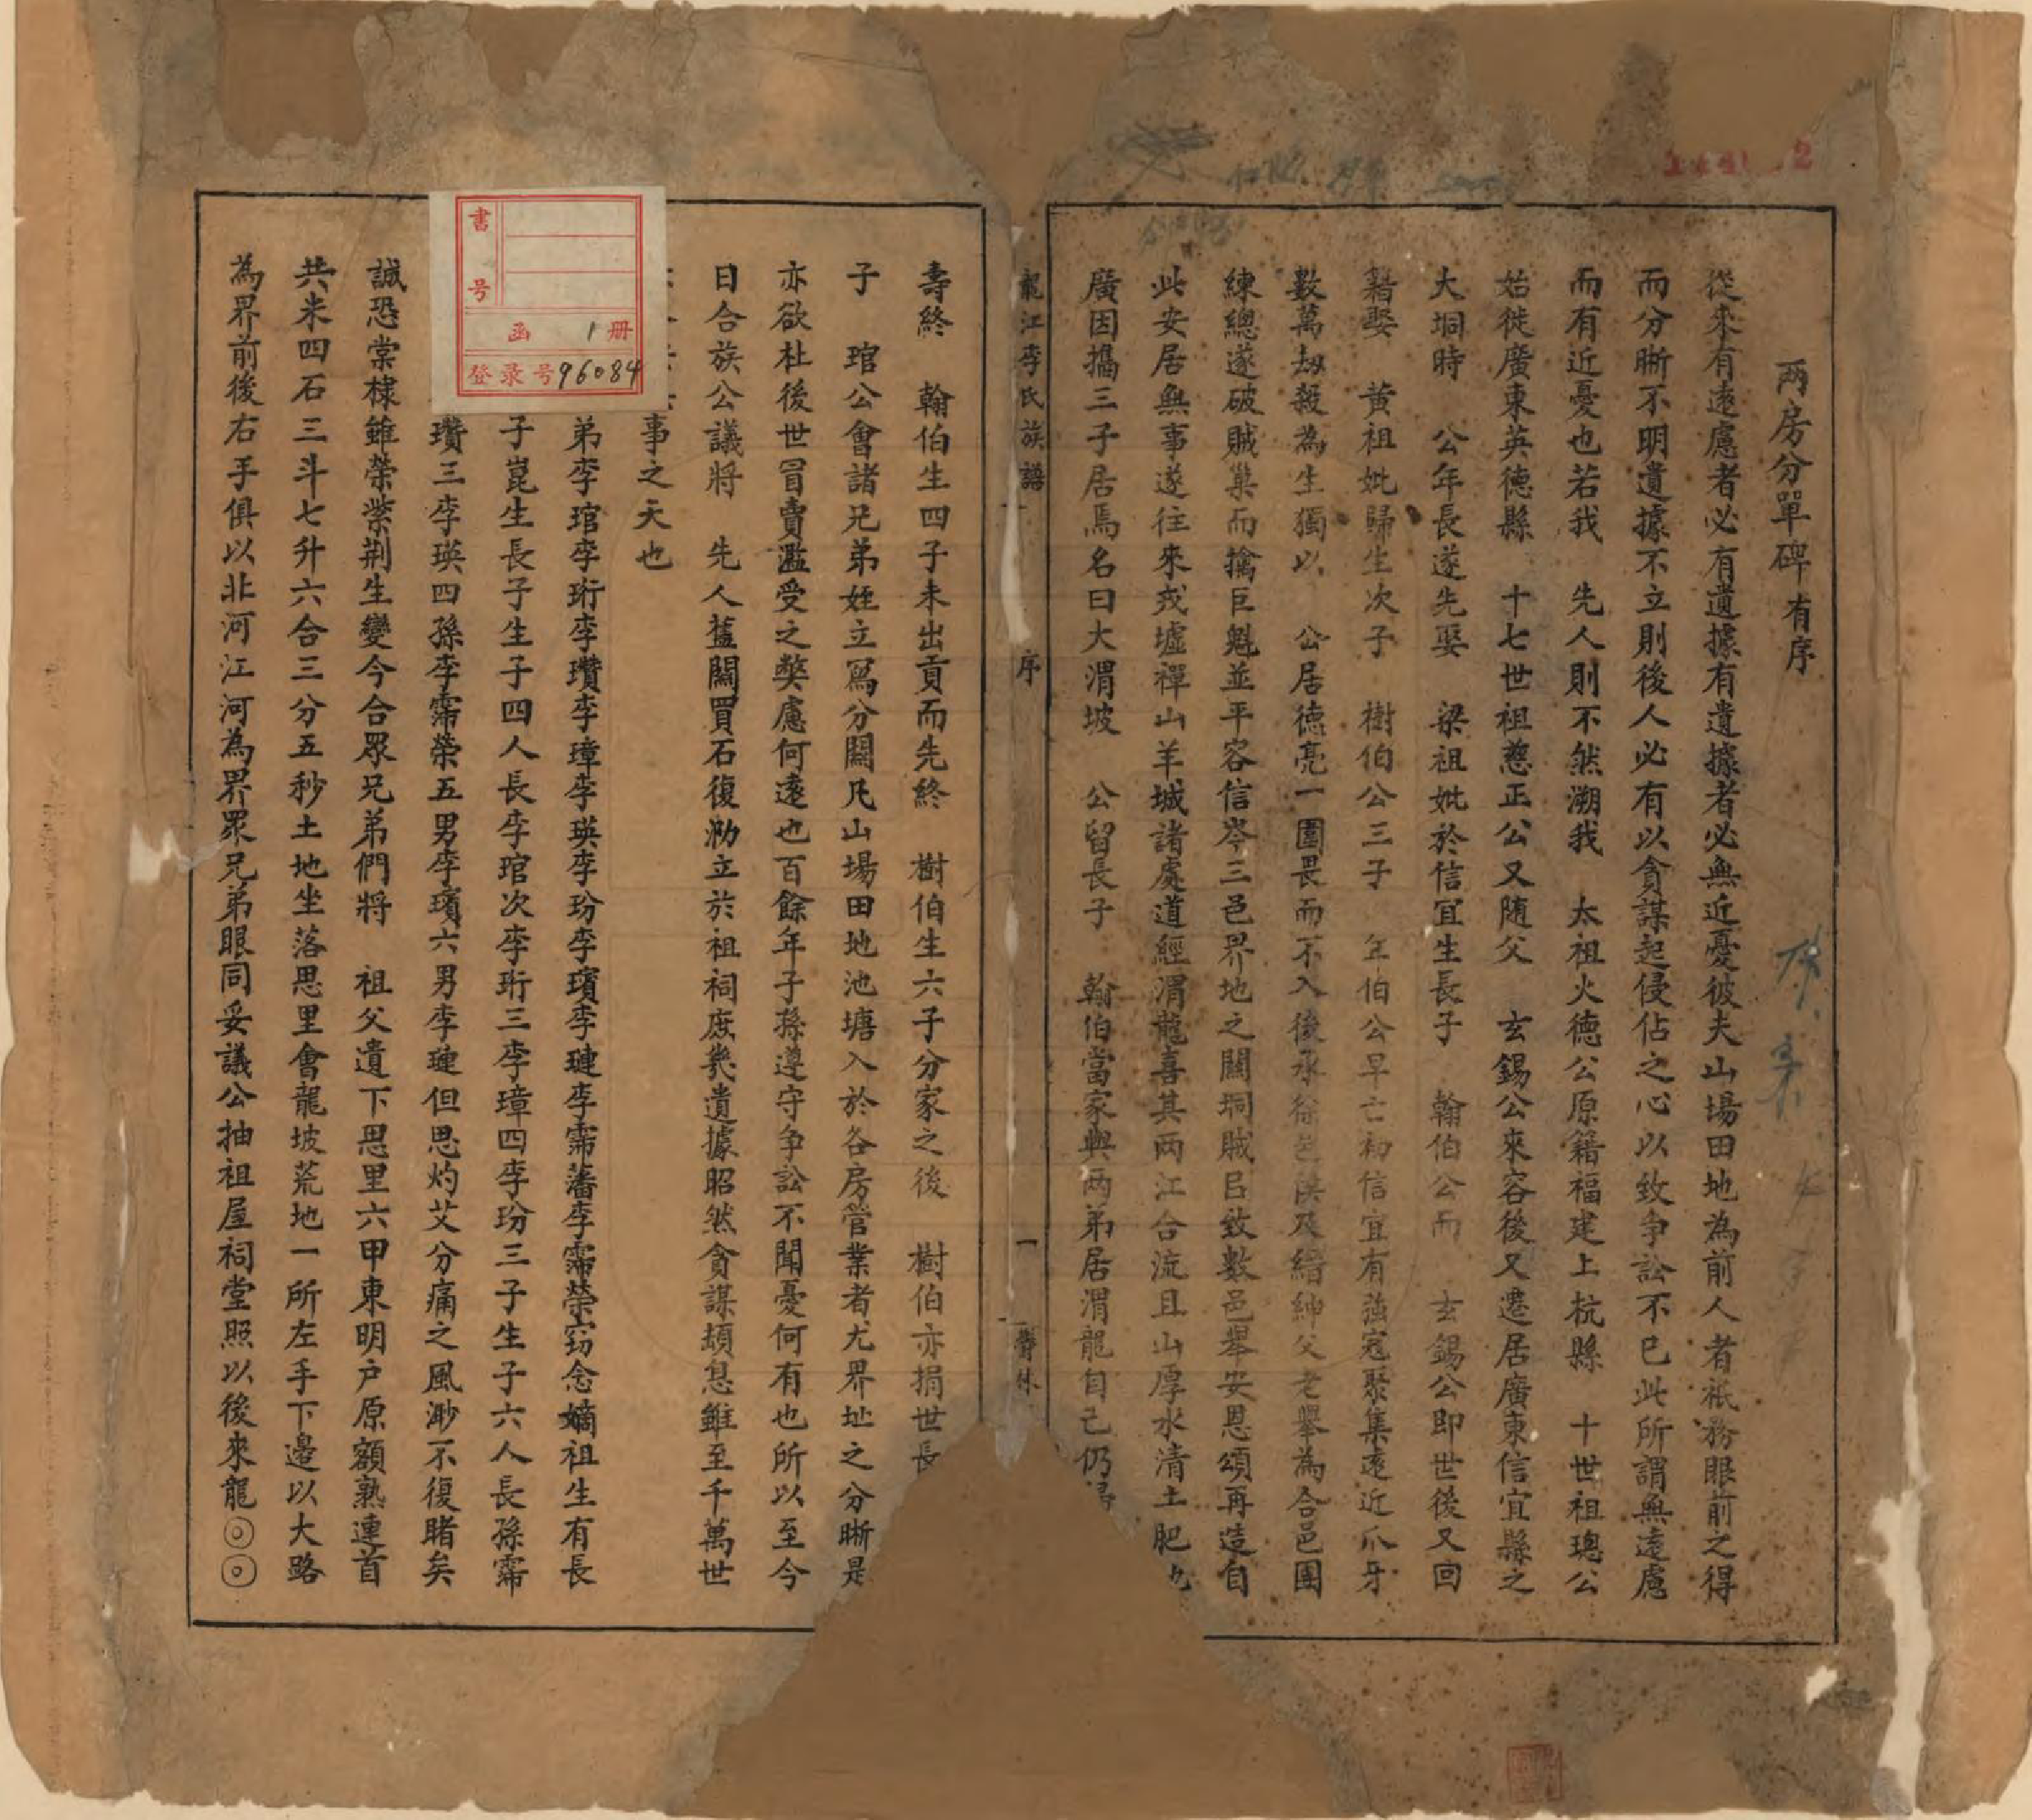 两房分單碑有序
從來有遠慮者必有遺據有遺據者必無近憂彼夫山場田地為前人者祇務眼前之得
而分晰不明遺據不立則後人必有以貪謀起侵佔之心以致争訟不已此所謂無遠慮
而有近憂也若我 先人則不然溯我 太祖火德公原籍福建上杭縣 十世祖璁公
始徙廣東英德縣 十七世祖慈正公又随父 玄錫公來容後又遷居廣東信宜縣之
大垌時 公年長遂先娶 梁祖妣於信宜生長子 翰伯公而 玄錫公即世後又回
籍娶 黃祖妣歸生次子 樹伯公三子 年伯公早亡初信宜有強寇聚集遠近爪牙
數萬刼殺為生獨以 公居德亮一團畏而不入後承徐邑侯及縉紳父老舉為合邑團
練總遂破賊巢而擒巨魁並平容信岑三邑界地之關垌賊呂致數邑舉安恩頌再造自
此安居無事遂往來戎墟禪山羊城諸處道經渭龍喜其两江合流且山厚水清土肥
廣因攜三子居焉名曰大渭坡 公留長子 翰伯當家與两弟居渭龍自己仍
龍江李氏族譜 序 一
壽終 翰伯生四子未出貢而先終 樹伯生六子分家之後 樹伯亦捐世長
子 琯公會諸兄弟姪立寫分關凡山場田地池塘入於各房管業者尤界址之分晰是
亦欲杜後世冒賣濫受之獘慮何遠也百餘年子孫遵守争訟不聞憂何有也所以至今
日合族公議將 先人舊關買石復泐立於祖祠庶幾遺據昭然貪謀頓息雖至千萬世
事之天也
弟李琯李珩李瓚李璋李瑛李玢李璸李璉李霈藩李霈榮窃念嫡祖生有長
子崑生長子生子四人長李琯次李珩三李璋四李玢三子生子六人長孫霈
瓚三李瑛四孫李霈榮五男李璸六男李璉但思灼艾分痛之風渺不復睹矣
誠恐棠棣雖榮紫荆生變今合眾兄弟們將 祖父遺下思里六甲東明户原額熟連首
共米四石三斗七升六合三分五秒土地坐落思里會龍坡荒地一所左手下邊以大路
為界前後右手俱以北河江河為界眾兄弟眼同妥議公抽祖屋祠堂照以後來龍◎◎
書号
函 1册
登录号96084